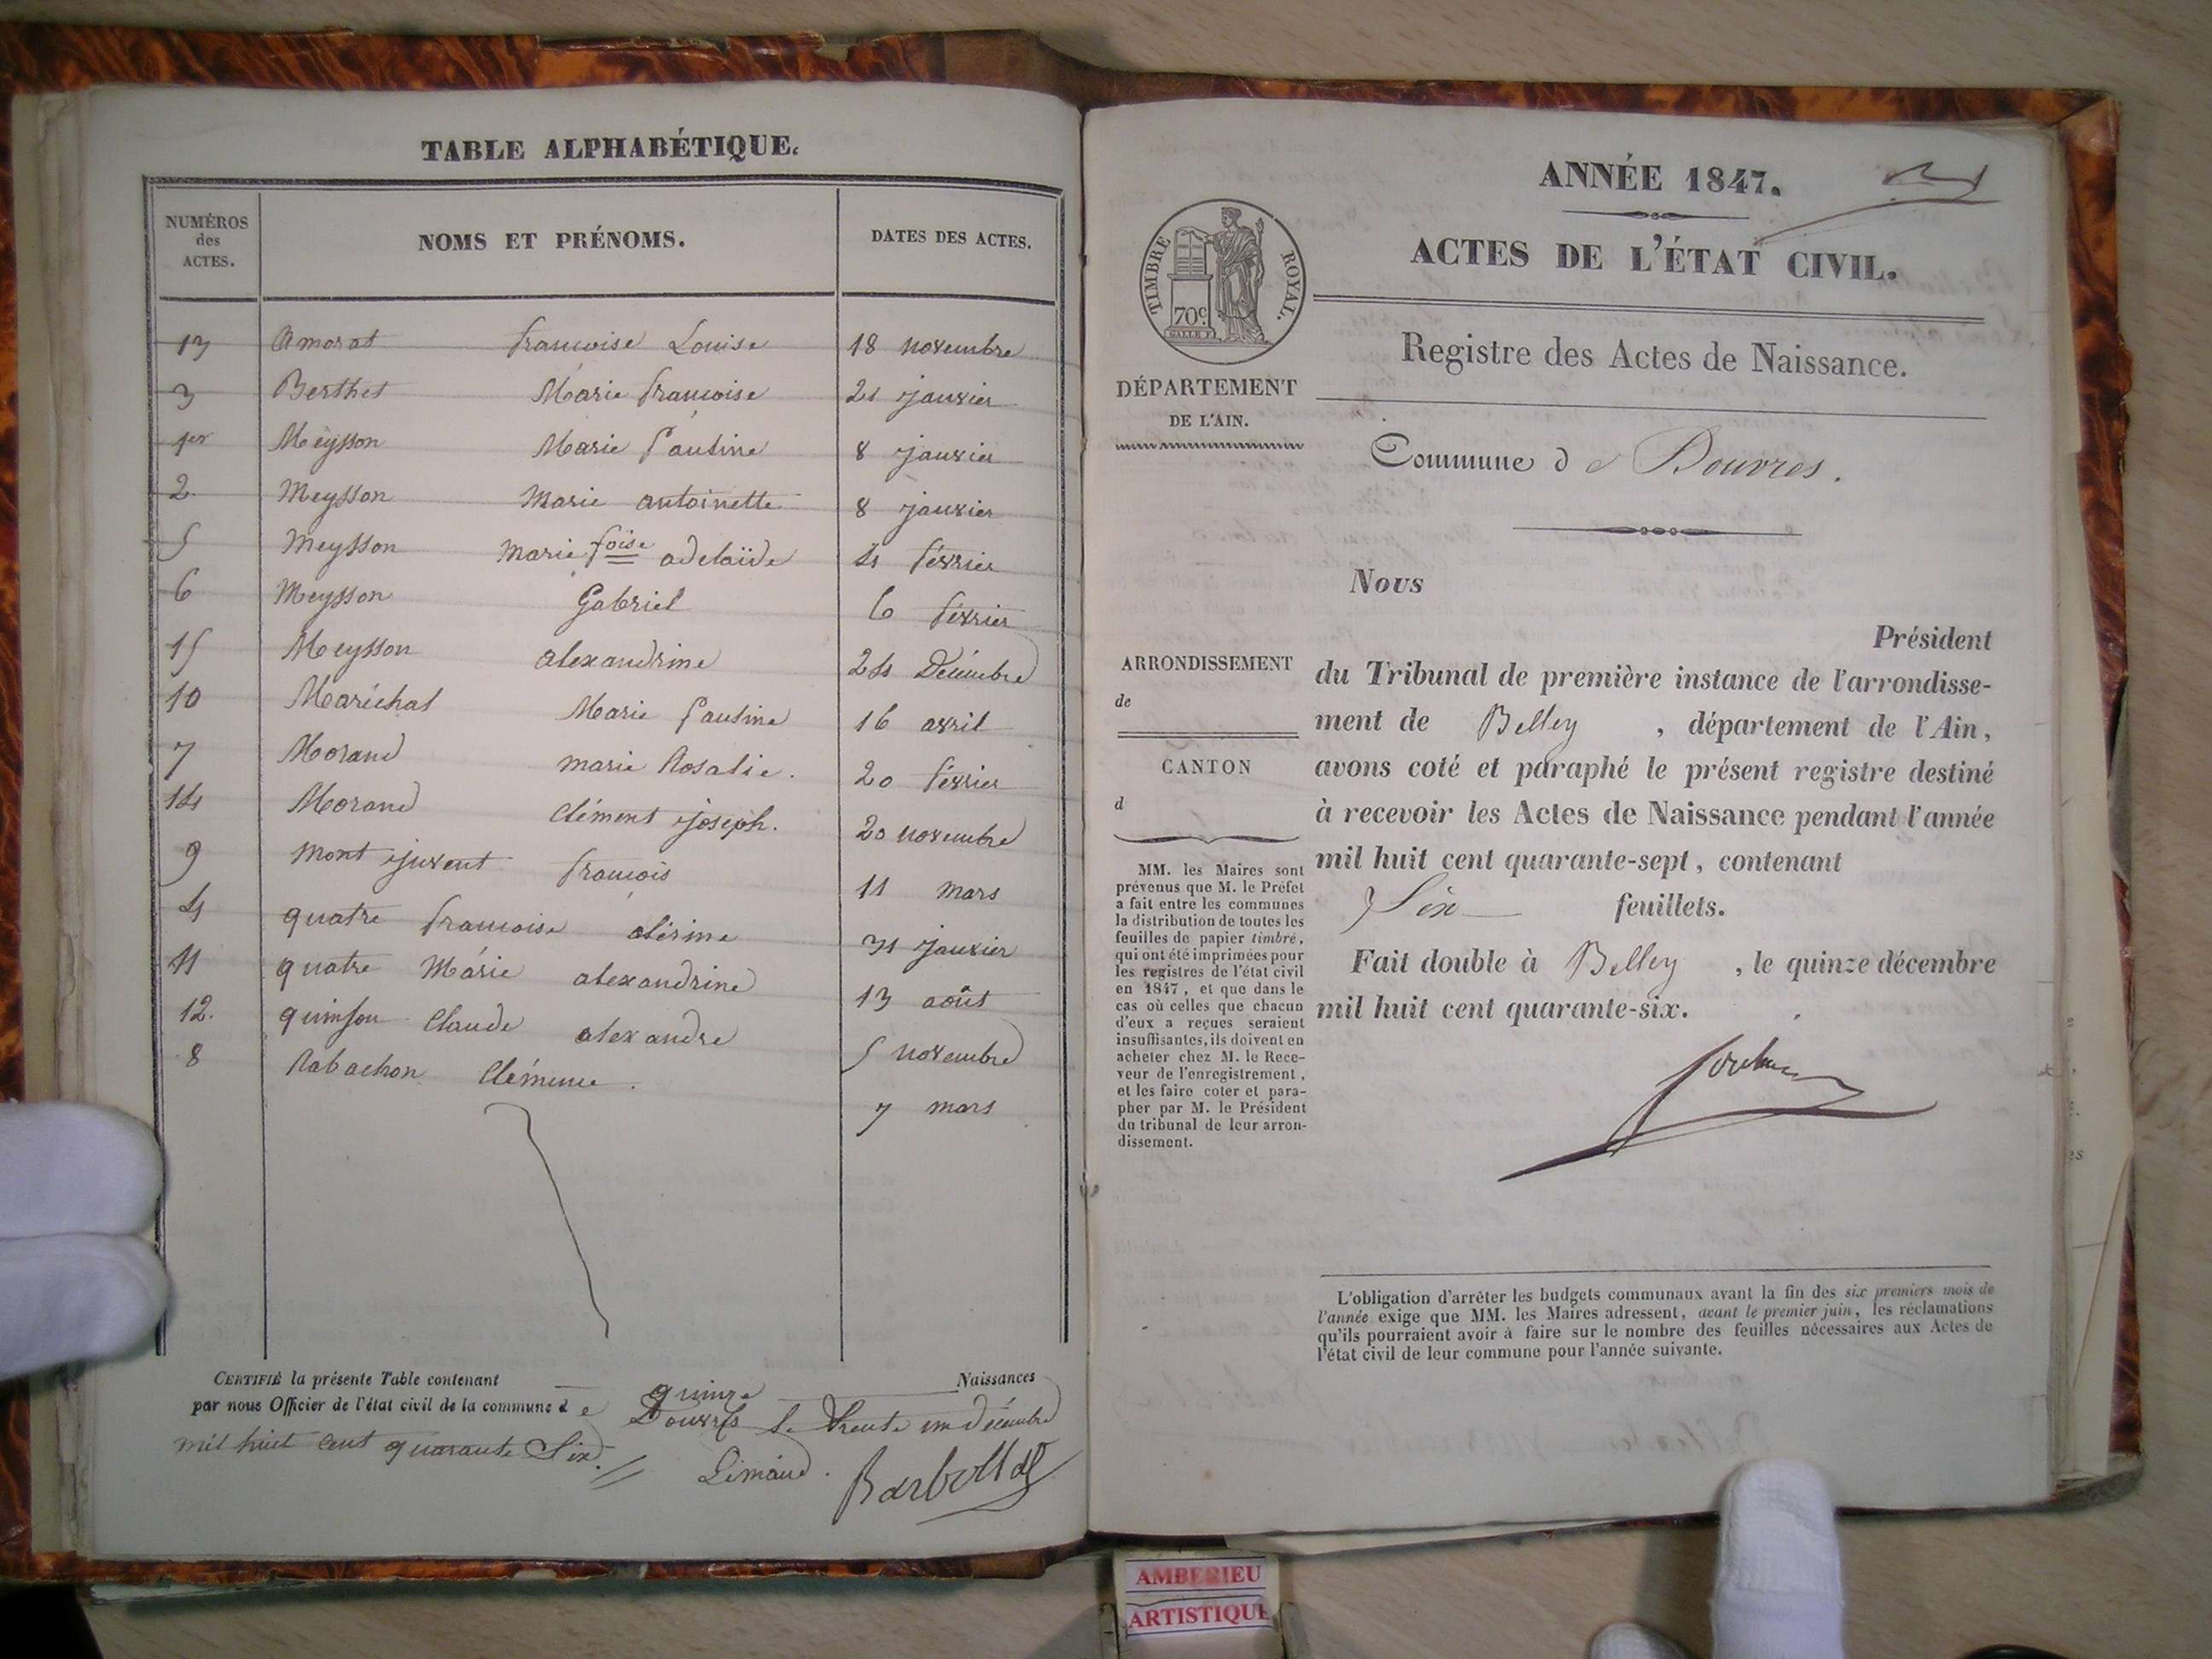 TABLE ALPHABÉTIQUE.
NUMÉROS des ACTES. NOMS ET PRÉNOMS. DATES DES ACTES.
13 Amorat francoise Louise 18 novembre
3 Berthet Marie francoise 21 janvier
1er Meysson Marie Pauline 8 janvier
2. Meysson Marie antoinette 8 janvier
5 Meysson Marie foise adelaïde 4 février
6 Meysson Gabriel 6 février
15 Meysson alexandrine 24 Décembre
10 Maréchal Marie Pauline 16 avril
7 Morand marie Rosalie. 20 février
14 Morand Clément joseph. 20 novembre
9 Mont juvent francois 11 mars
4 quatre francoise 31 janvier
11 quatre Marie alexandrine 13 août
12. quinson Claude alexandre 5 novembre
8 Rabachon Clémence. 7 mars
CERTIFIÉ la présente Table contenant quinze Naissances
par nous Officier de l'état civil de la commune de Douvres le trente un décembre
mil huit cent quarante Six.
Limand. Barbollat
ANNÉE 1847.
ACTES DE L'ÉTAT CIVIL.
TIMBRE ROYAL.
70c
Registre des Actes de Naissance.
DÉPARTEMENT
DE L'AIN.
Commune d e Douvres.
Nous
Président
du Tribunal de première instance de l'arrondisse-
ment de Belley, département de l'Ain,
avons coté et paraphé le présent registre destiné
à recevoir les Actes de Naissance pendant l'année
mil huit cent quarante-sept, contenant
Six feuillets.
Fait double à Belley, le quinze décembre
mil huit cent quarante-six.
ARRONDISSEMENT
de
CANTON
d
MM. les Maires sont
prévenus que M. le Préfet
a fait entre les communes
la distribution de toutes les
feuilles de papier timbré,
qui ont été imprimées pour
les registres de l'état civil
en 1847, et que dans le
cas où celles que chacun
d'eux a reçues seraient
insuffisantes, ils doivent en
acheter chez M. le Rece-
veur de l'enregistrement,
et les faire coter et para-
pher par M. le Président
du tribunal de leur arron-
dissement.
L'obligation d'arrêter les budgets communaux avant la fin des six premiers mois de
l'année exige que MM. les Maires adressent, avant le premier juin, les réclamations
qu'ils pourraient avoir à faire sur le nombre des feuilles nécessaires aux Actes de
l'état civil de leur commune pour l'année suivante.
AMBERIEU
ARTISTIQUE